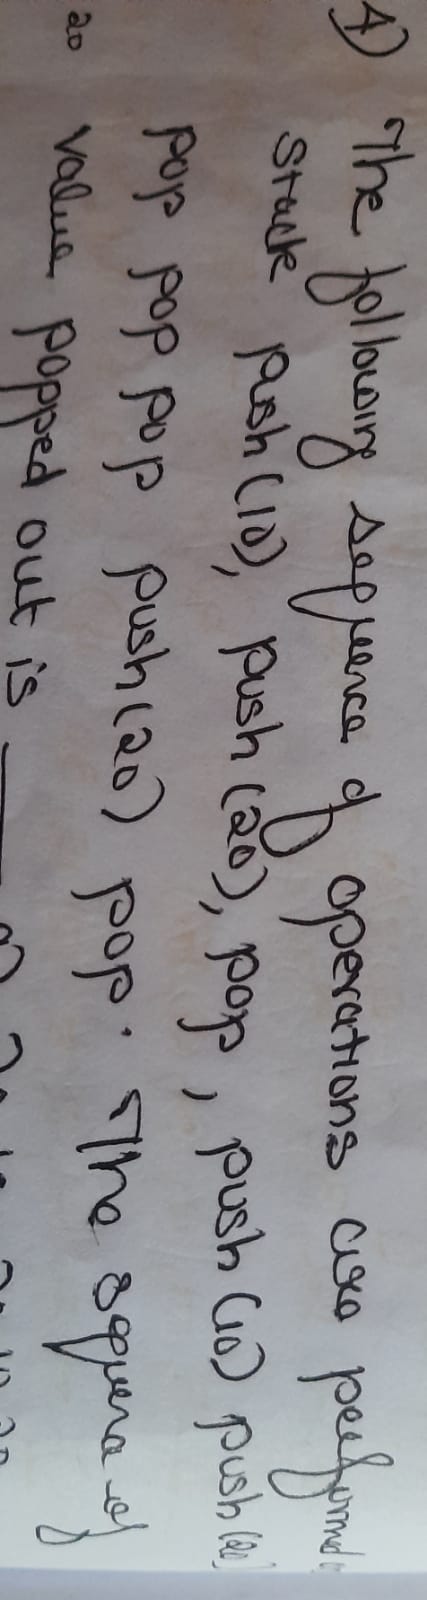 4) The following sequence of operations are performed
stack push (10), push (20), pop, push (10) push (20)
pop pop pop push (20) pop. The sequence of
20 value popped out is ____